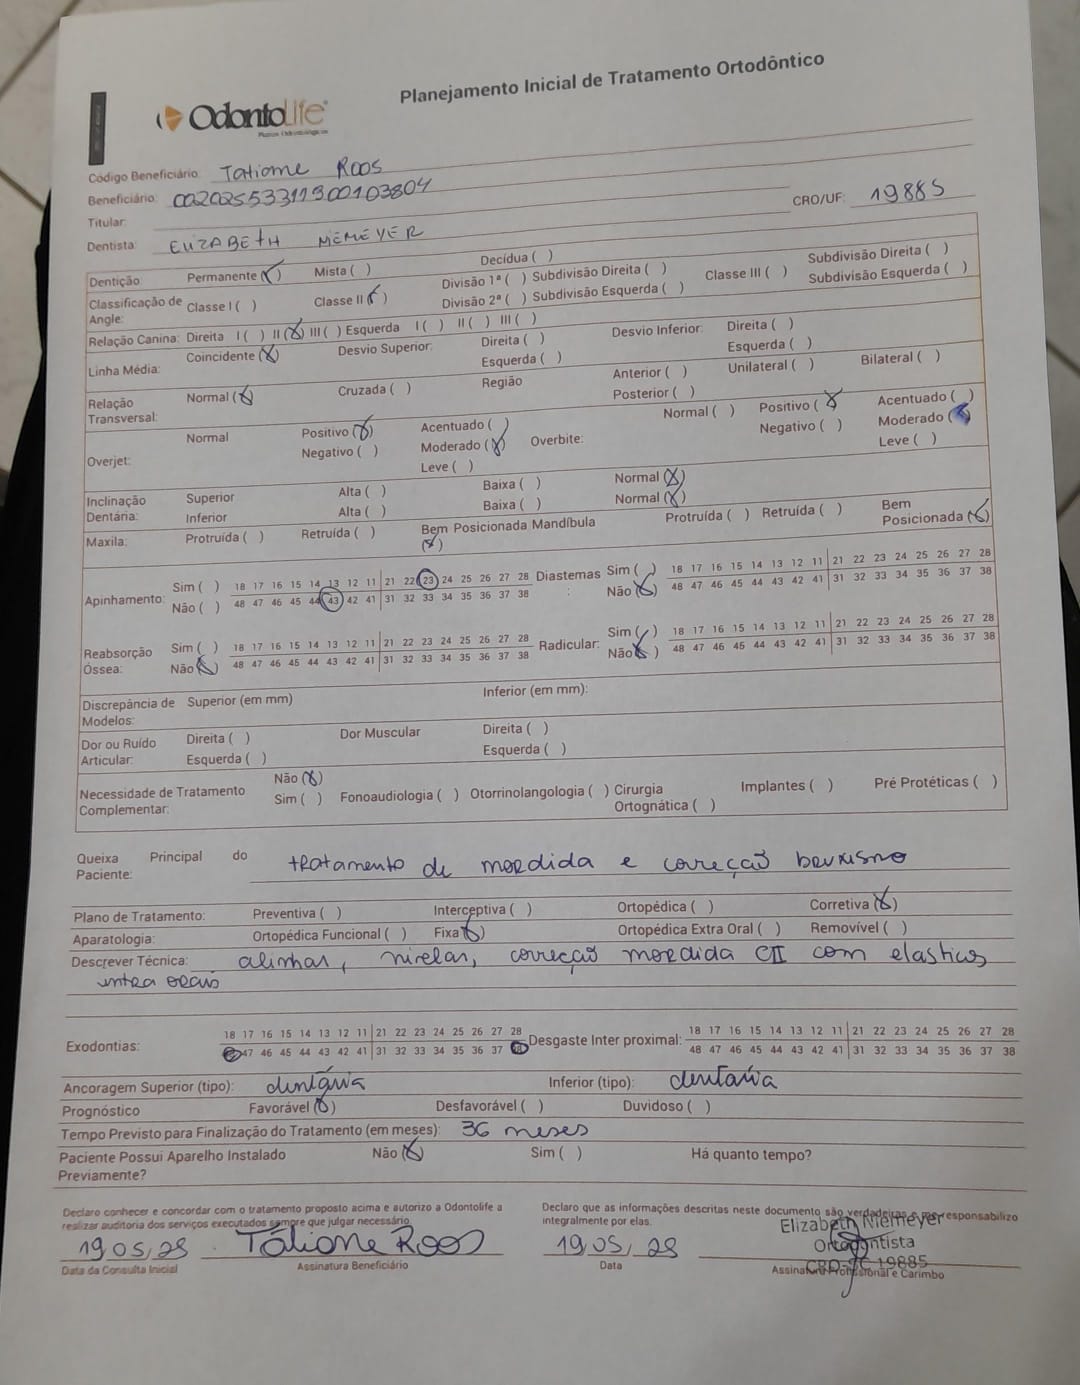 Planejamento Inicial de Tratamento Ortodôntico
OdontoLife
Planos Odontológicos
Código Beneficiário: Tatiome Roos
Beneficiário: 00202553311300103804
Titular: CRO/UF: 19885
Dentista: ELIZABETH NEMEYER
Dentição: Permanente (X) Mista ( ) Decídua ( )
Classificação de Angle: Classe I ( ) Classe II (X) Divisão 1ª ( ) Subdivisão Direita ( ) Classe III ( ) Subdivisão Direita ( )
Divisão 2ª ( ) Subdivisão Esquerda ( ) Subdivisão Esquerda ( )
Relação Canina: Direita I ( ) II (X) III ( ) Esquerda I ( ) II ( ) III ( )
Linha Média: Coincidente (X) Desvio Superior: Direita ( ) Desvio Inferior: Direita ( )
Esquerda ( ) Esquerda ( )
Relação Transversal: Normal (X) Cruzada ( ) Região Anterior ( ) Unilateral ( ) Bilateral ( )
Posterior ( )
Overjet: Normal Positivo (X) Acentuado ( ) Overbite: Normal ( ) Positivo (X) Acentuado ( )
Negativo ( ) Moderado (X) Negativo ( ) Moderado (X)
Leve ( ) Leve ( )
Inclinação Dentária: Superior Alta ( ) Baixa ( ) Normal (X)
Inferior Alta ( ) Baixa ( ) Normal (X)
Maxila: Protruída ( ) Retruída ( ) Bem Posicionada (X) Mandíbula Protruída ( ) Retruída ( ) Bem Posicionada (X)
Apinhamento: Sim ( ) 18 17 16 15 14 13 12 11 21 22 23 24 25 26 27 28 Diastemas: Sim ( ) 18 17 16 15 14 13 12 11 21 22 23 24 25 26 27 28
Não ( ) 48 47 46 45 44 43 42 41 31 32 33 34 35 36 37 38 Não (X) 48 47 46 45 44 43 42 41 31 32 33 34 35 36 37 38
Reabsorção Óssea: Sim ( ) 18 17 16 15 14 13 12 11 21 22 23 24 25 26 27 28 Radicular: Sim ( ) 18 17 16 15 14 13 12 11 21 22 23 24 25 26 27 28
Não (X) 48 47 46 45 44 43 42 41 31 32 33 34 35 36 37 38 Não (X) 48 47 46 45 44 43 42 41 31 32 33 34 35 36 37 38
Discrepância de Modelos: Superior (em mm) Inferior (em mm):
Dor ou Ruído Articular: Direita ( ) Dor Muscular Direita ( )
Esquerda ( ) Esquerda ( )
Necessidade de Tratamento Complementar: Não (X)
Sim ( ) Fonoaudiologia ( ) Otorrinolangologia ( ) Cirurgia Ortognática ( ) Implantes ( ) Pré Protéticas ( )
Queixa Principal do Paciente: tratamento de mordida e correção bruxismo
Plano de Tratamento: Preventiva ( ) Interceptiva ( ) Ortopédica ( ) Corretiva (X)
Aparatologia: Ortopédica Funcional ( ) Fixa (X) Ortopédica Extra Oral ( ) Removível ( )
Descrever Técnica: alinhar, nivelar, correção mordida CII com elasticos
intra orais
Exodontias: 18 17 16 15 14 13 12 11 21 22 23 24 25 26 27 28 Desgaste Inter proximal: 18 17 16 15 14 13 12 11 21 22 23 24 25 26 27 28
48 47 46 45 44 43 42 41 31 32 33 34 35 36 37 38 48 47 46 45 44 43 42 41 31 32 33 34 35 36 37 38
Ancoragem Superior (tipo): dentária Inferior (tipo): dentaria
Prognóstico Favorável (X) Desfavorável ( ) Duvidoso ( )
Tempo Previsto para Finalização do Tratamento (em meses): 36 meses
Paciente Possui Aparelho Instalado Previamente? Não (X) Sim ( ) Há quanto tempo?
Declaro conhecer e concordar com o tratamento proposto acima e autorizo a Odontolife a
realizar auditoria dos serviços executados sempre que julgar necessário.
Declaro que as informações descritas neste documento são verdadeiras e me responsabilizo
integralmente por elas.
19,05,25 Tatiome Roos 19,05,25
Elizabeth Niemeyer
Ortodontista
CRO-SC 19885
Data da Consulta Inicial Assinatura Beneficiário Data Assinatura Profissional e Carimbo